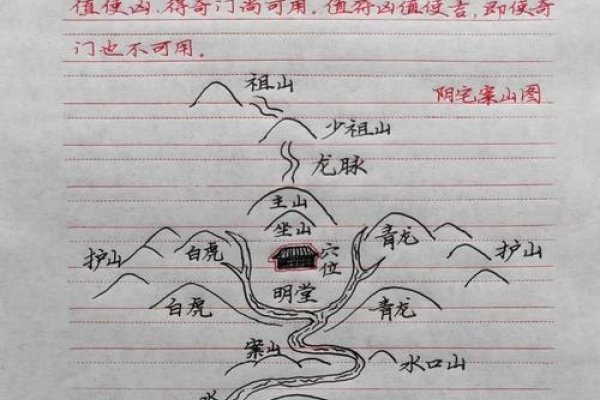 值使凶.得奇门尚可用.值符凶值使吉,即使奇
门也不可用.
祖山
阴宅案山图
少祖山
龙脉
主山
坐山
青龙
护山
白虎
穴位
护山
明堂
白虎
青龙
案山
水口山
水